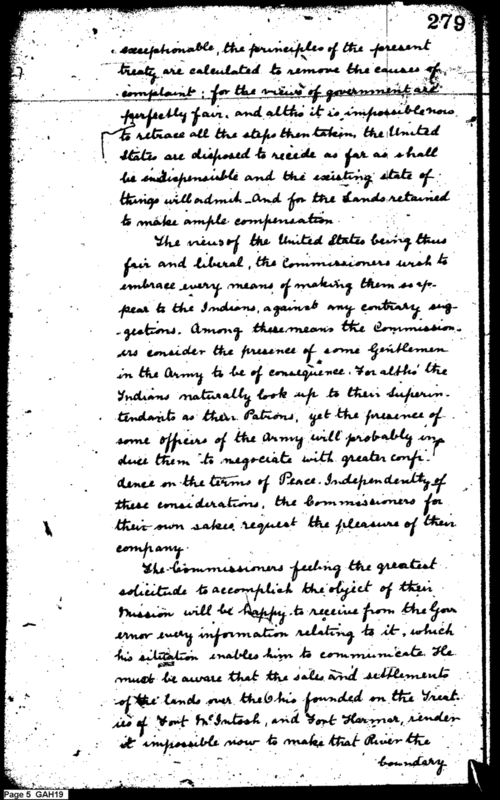 279
exceptionable, the principles of the present
treaty are calculated to remove the causes of
complaint; for the views of government are
perfectly fair, and altho it is impossible now
to retrace all the steps then taken, the United
States are disposed to recede as far as shall
be indispensible and the existing state of
things will admit - And for the Lands retained
to make ample compensation.
The views of the United States being thus
fair and liberal, the Commissioners wish to
embrace every means of making them so ap-
pear to the Indians, against any contrary sug-
-gestions. Among these means the Commission-
ers consider the presence of some Gentlemen
in the Army to be of consequence. For altho' the
Indians naturally look up to their Superin-
tendants as their Patrons, yet the presence of
some officers of the Army will probably in-
duce them to negociate with greater confi-
dence on the terms of Peace. Independently of
these considerations, the Commissioners for
their own sakes request the pleasure of their
company.
The Commissioners feeling the greatest
solicitude to accomplish the object of their
Mission will be happy to receive from the Gov
ernor every information relating to it, which
his situation enables him to communicate. He
must be aware that the sales and settlements
of the lands over the Ohio founded on the Treat-
ies of Fort McIntosh, and Fort Harmar, render
it impossible now to make that River the
boundary
Page 5 GAH19